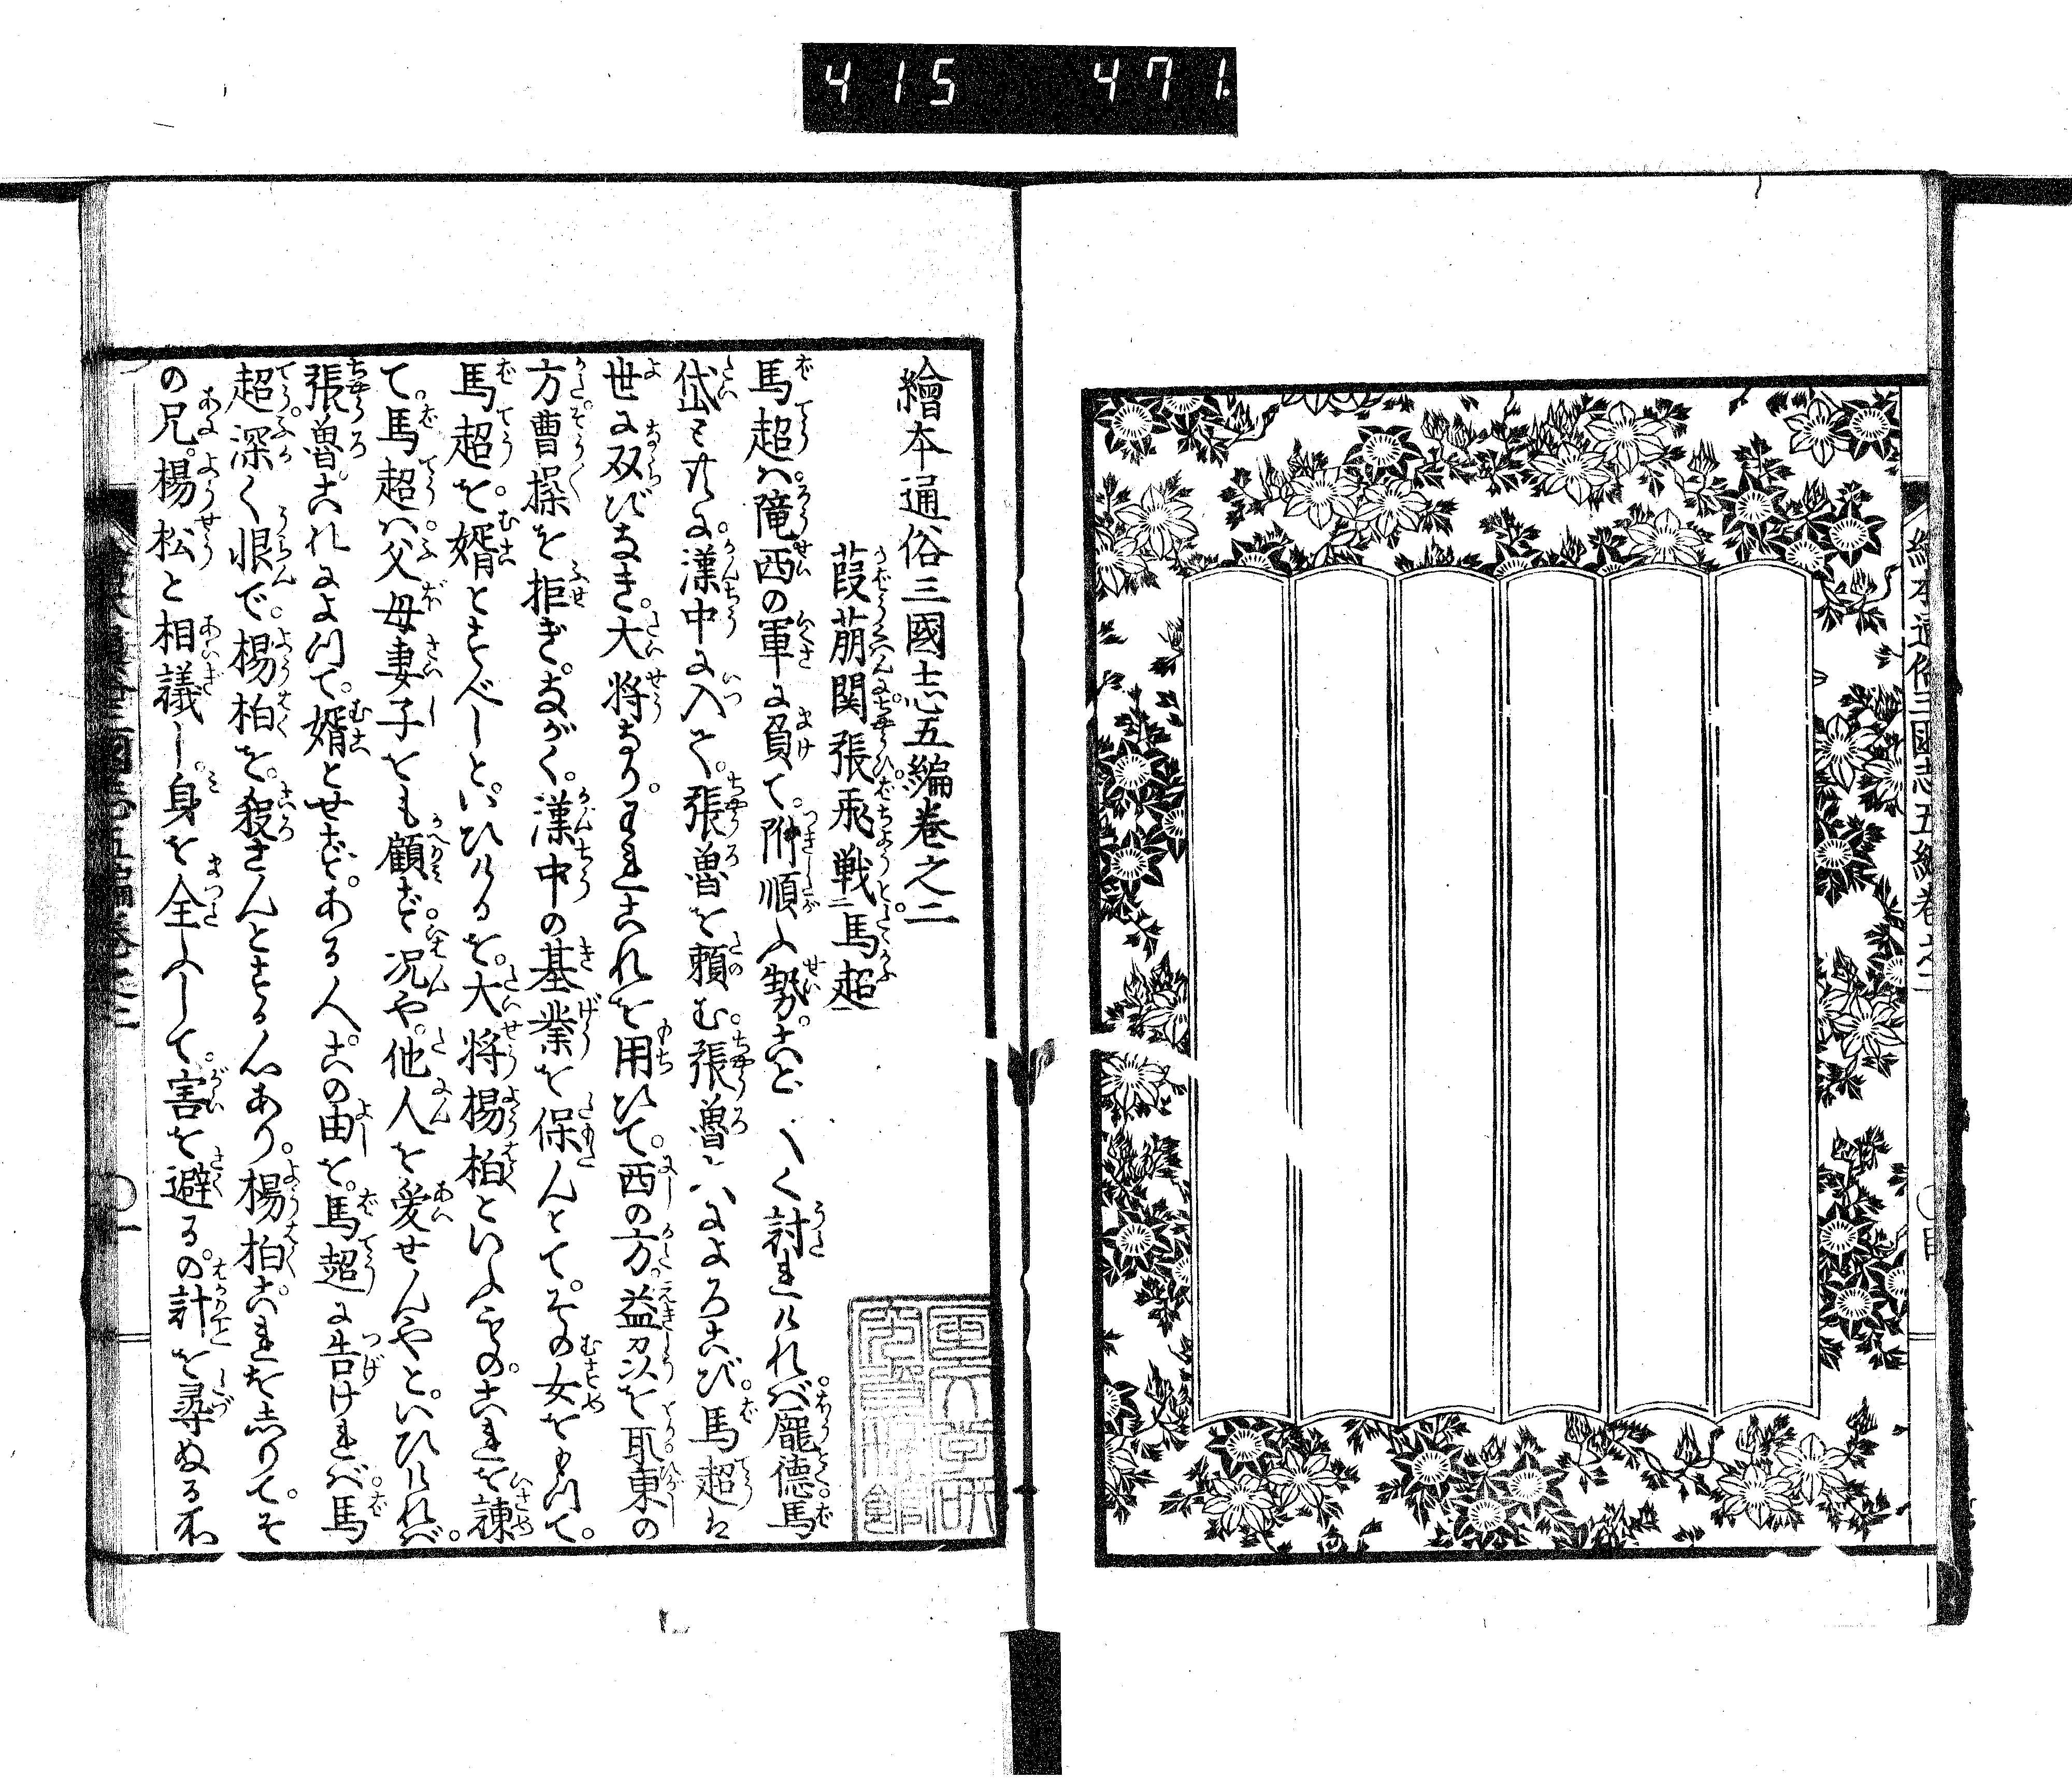 415 471.
繪本通俗三國志五編卷之二
繪本通俗三國志五編卷之二
葭萌関張飛戦二馬超一
馬超ハ。隴西の軍に負て。附順ふ勢。こと〴〵く討れけれバ。龐徳馬
岱とともに。漢中に入て。張魯を頼む。張魯ハ大によろこび。馬超は
世に双びなき。大将なり。われこれを用ひて。西の方。益州を取。東の
方。曹操を拒ぎ。ながく。漢中の基業を保んとて。その女をもつて。
馬超を。婿とすべしと。いひけるを。大将楊柏といふもの。これを諫
て。馬超ハ。父母妻子をも顧ず。况や。他人を愛せんやと。いひけれバ。
張魯。これによつて。婿とせず。ある人。この由を。馬超に告けれバ。馬
超。深く恨で。楊柏を。殺さんとする心あり。楊柏。これをしりて。そ
の兄。楊松と相議し。身を全ふして。害を避るの。計を尋ぬる。不